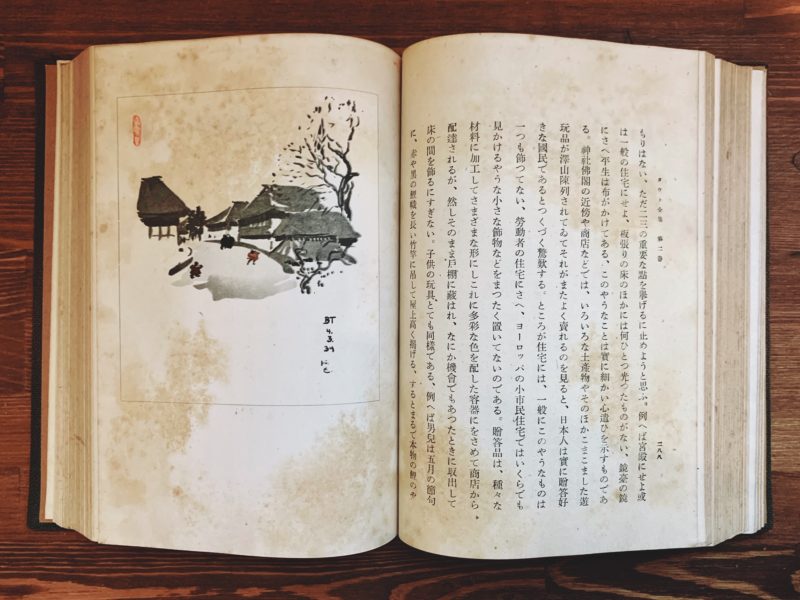 タウト全集 第二巻
もりはない、ただ二三の重要な點を擧げるに止めようと思ふ。例へば宮殿にせよ或
は一般の住宅にせよ、板張りの床のほかには何ひとつ光つたものがない、鏡臺の鏡
にさへ平生は布がかけてある、このやうなことは實に細かい心遣ひを示すものであ
る。神社佛閣の近傍や商店などでは、いろいろな土產物やそのほかこまごました遊
玩品が澤山陳列されてゐてそれがまたよく賣れるのを見ると、日本人は實に贈答好
きな國民であるとつくづく驚歎する。ところが住宅には、一般にこのやうなものは
一つも飾つてない、勞動者の住宅にさへ、ヨーロッパの小市民住宅ではいくらでも
見かけるやうな小さな飾物などをまつたく置いてないのである。贈答品は、種々な
材料に加工してさまざまな形にしこれに多彩な色を配した容器にをさめて商店から
配達されるが、然しそのまま戸棚に蔵はれ、なにか機會でもあつたときに取出して
床の間を飾るにすぎない。子供の玩具とても同樣である、例へば男兒は五月の節句
に、赤や黒の鯉幟を長い竹竿に吊して屋上高く揚げる、するとまるで本物の鯉のや
二八八
BT